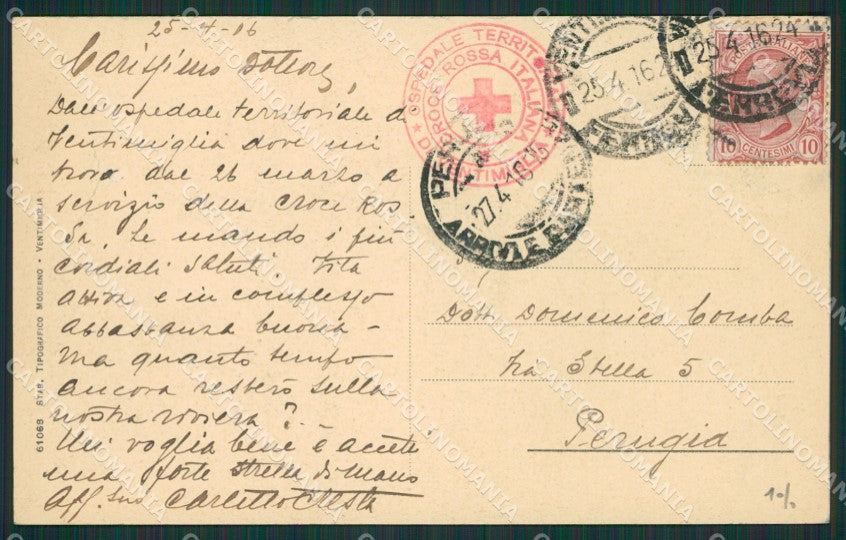 25-4-16
Carissimo Dottore,
Dall'ospedale territoriale di
Ventimiglia dove mi
trovo dal 26 marzo a
servizio della Croce Ros-
sa, Le mando i più
cordiali saluti. Vita
attiva e in complesso
abbastanza buona -
ma quanto tempo
ancora resterò sulla
nostra riviera?..
Mi voglia bene e accetti
una forte stretta di mano
Aff. suo Carlitto Cresta
61068 STAB. TIPOGRAFICO MODERNO - VENTIMIGLIA
OSPEDALE TERRIT
CROCE ROSSA ITALIANA
DI VENTIMIGLIA
VENTIMI
25.4.16 2
FERROVIA
25.4.16 24
FERROVIA
PERUGIA
27.4.16
ARRIVI E PARTENZE
POSTE ITALIANE
10 CENTESIMI 10
Dott. Domenico Comba
Via Stella 5
Perugia
CARTOLINOMANIA